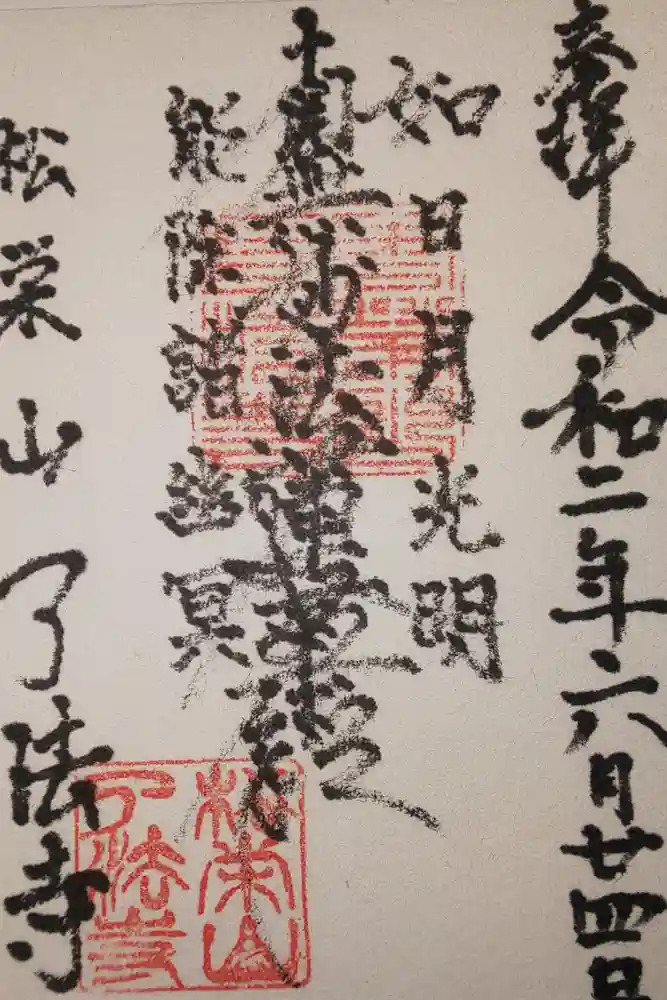 奉拝 令和二年六月廿四日
如日月光明
南無妙法蓮華経
能除諸幽冥
松栄山了法寺
松栄山
了法寺